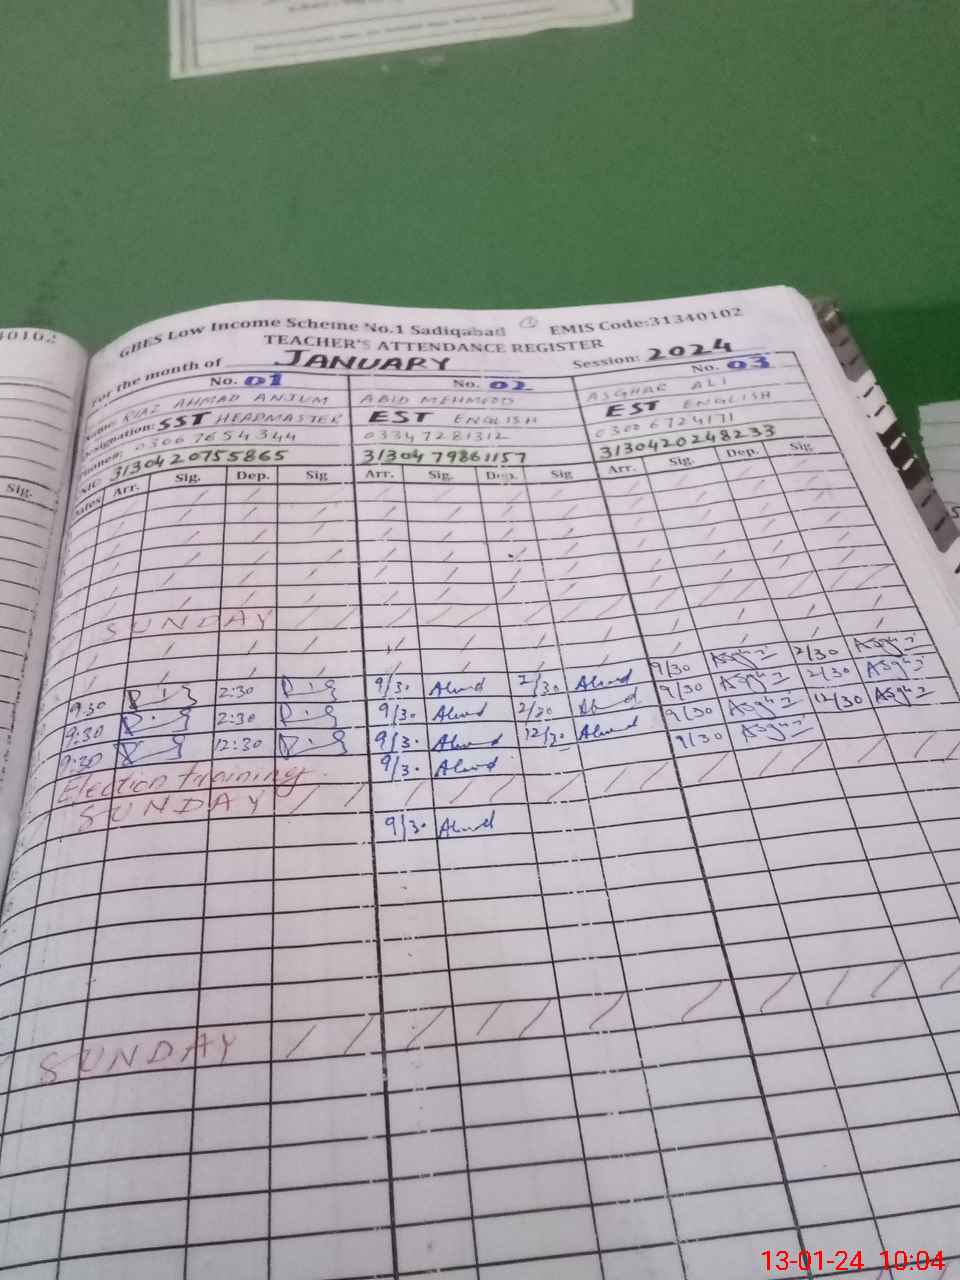 40102
GBES Low Income Scheme No.1 Sadiqabad ① EMIS Code:31340102
TEACHER'S ATTENDANCE REGISTER
For the month of JANUARY Session: 2024
No. 01 No. 02 No. 03
Name: RIAZ AHMAD ANJUM ABID MEHMOOD ASGHAR ALI
Designation: SST HEADMASTER EST ENGLISH EST ENGLISH
Phone#: 03067654344 03347281312 03006724171
3130420755865 3130479861157 3130420248233
Sig. Dates Arr. Sig. Dep. Sig Arr. Sig. Dep. Sig Arr. Sig. Dep. Sig.
SUNDAY
9:30 2:30 9/30 Abid 2/30 Abid 9/30 2/30
9:30 2:30 9/30 Abid 2/30 Abid 9/30 2/30
9:30 12:30 9/30 Abid 12/30 Abid 9/30 12/30
Election training 9/30 Abid 9/30
SUNDAY
9/30 Abid
SUNDAY
13-01-24 10:04